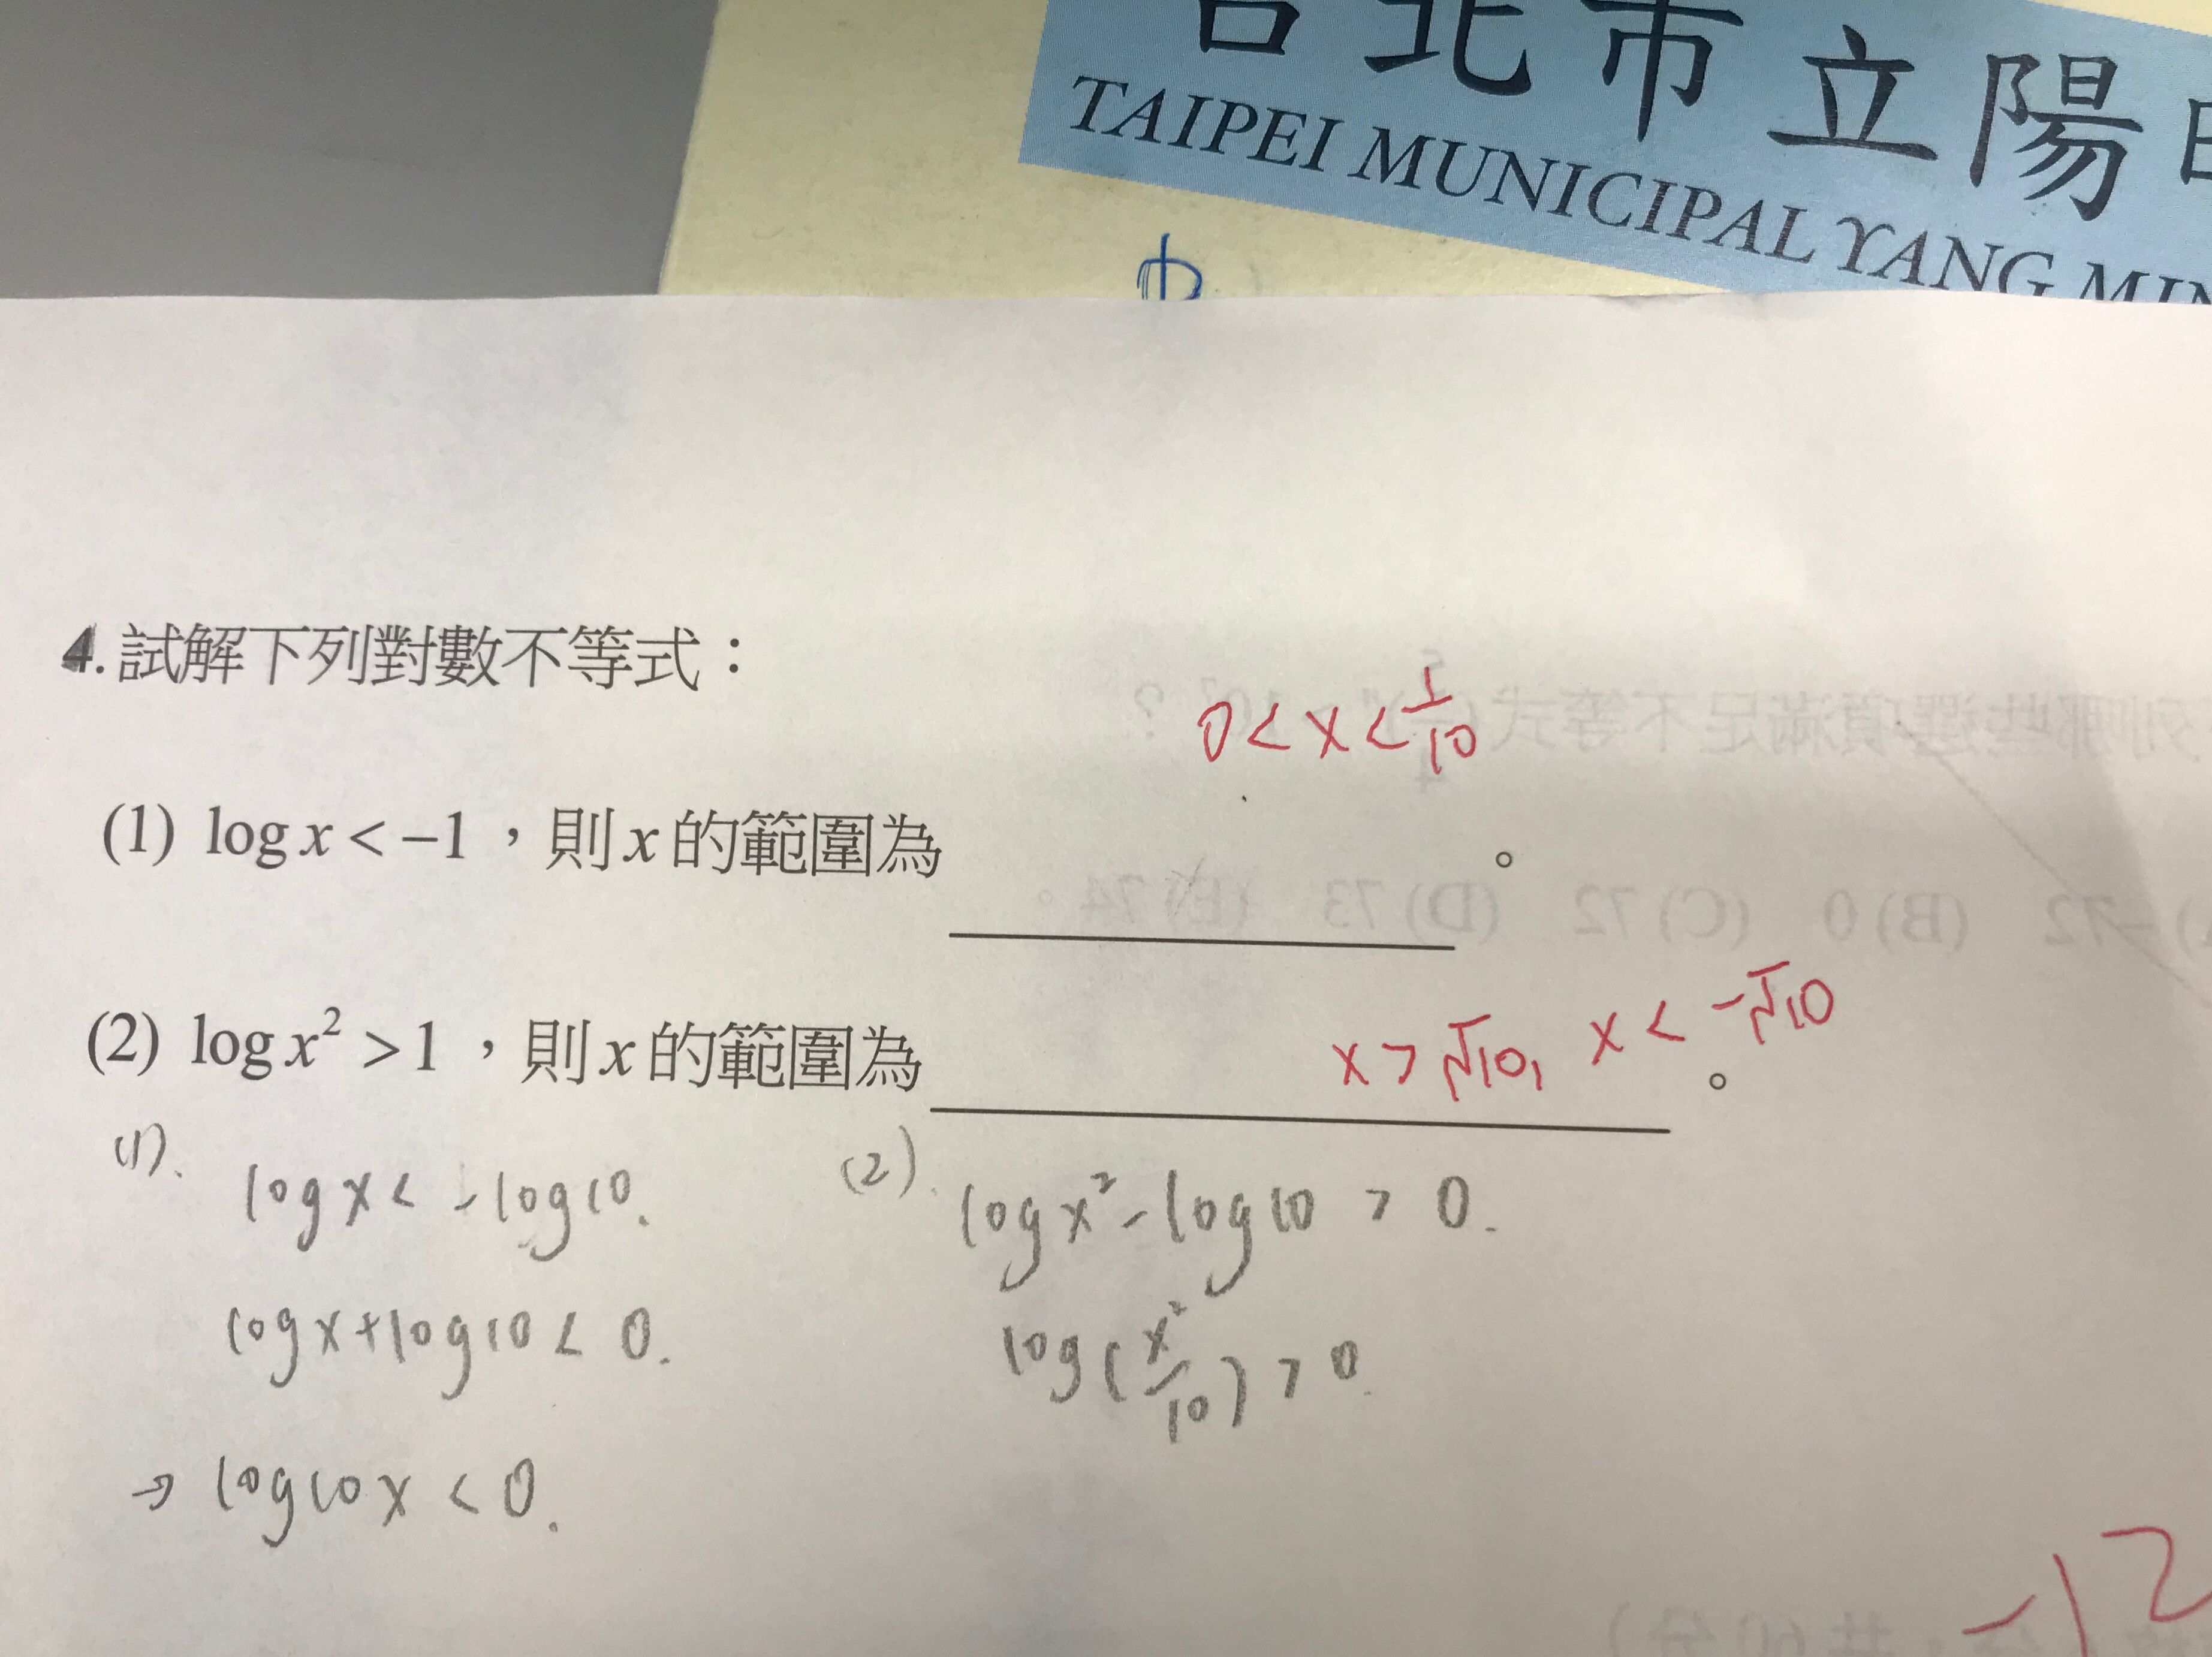 台北市立陽
TAIPEI MUNICIPAL YANG MIN
4. 試解下列對數不等式：
0 < x < 1/10
(1) log x < −1 ，則 x 的範圍為 。
x > √10, x < −√10
(2) log x² > 1 ，則 x 的範圍為 。
(1). log x < − log 10.
log x + log 10 < 0.
→ log 10 x < 0.
(2). log x² − log 10 > 0.
log ( x²/10 ) > 0.
−12